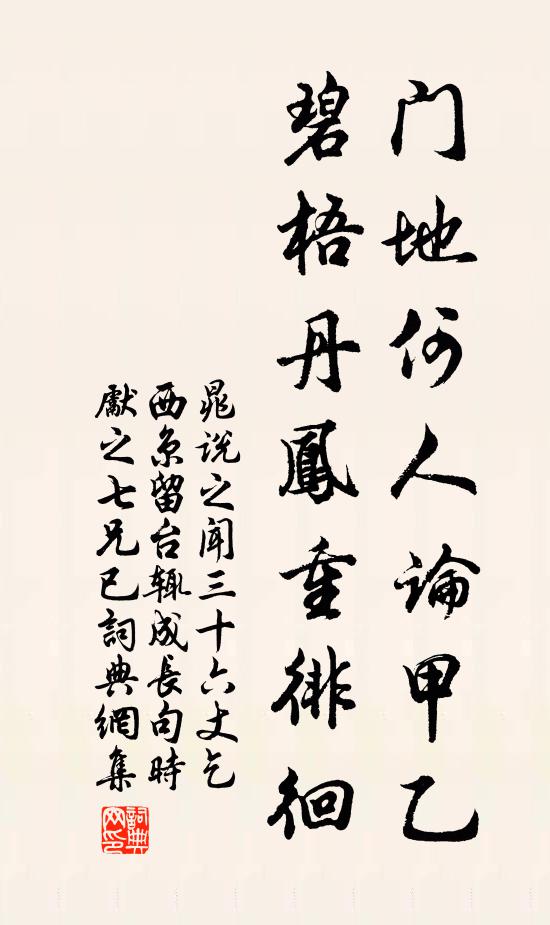 门地何人論甲乙
碧梧丹鳳重徘徊
晁说之闻三十六丈乞
西京留台辄成長句時
獻之七兄已詞典網集
詞典网印